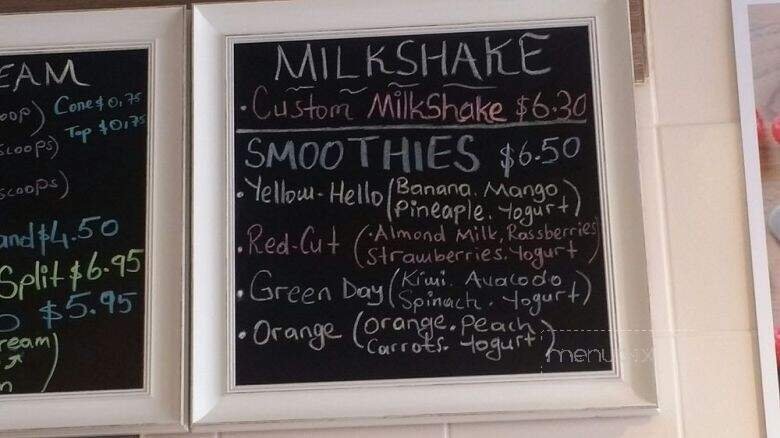 EAM
oop)
Cone $0,75
Top $0,75
scoops)
scoops)
and $4.50
Split $6.95
$5.95
ream)
MILKSHAKE
• Custom MilkShake $6.30
SMOOTHIES $6.50
• Yellow-Hello (Banana. Mango
Pineapple. Yogurt)
• Red-Cut (•Almond Milk, Rassberries
strawberries. Yogurt)
• Green Day (Kiwi. Avacodo
Spinach. Yogurt)
• Orange (orange. Peach
Carrots. Yogurt)
menu